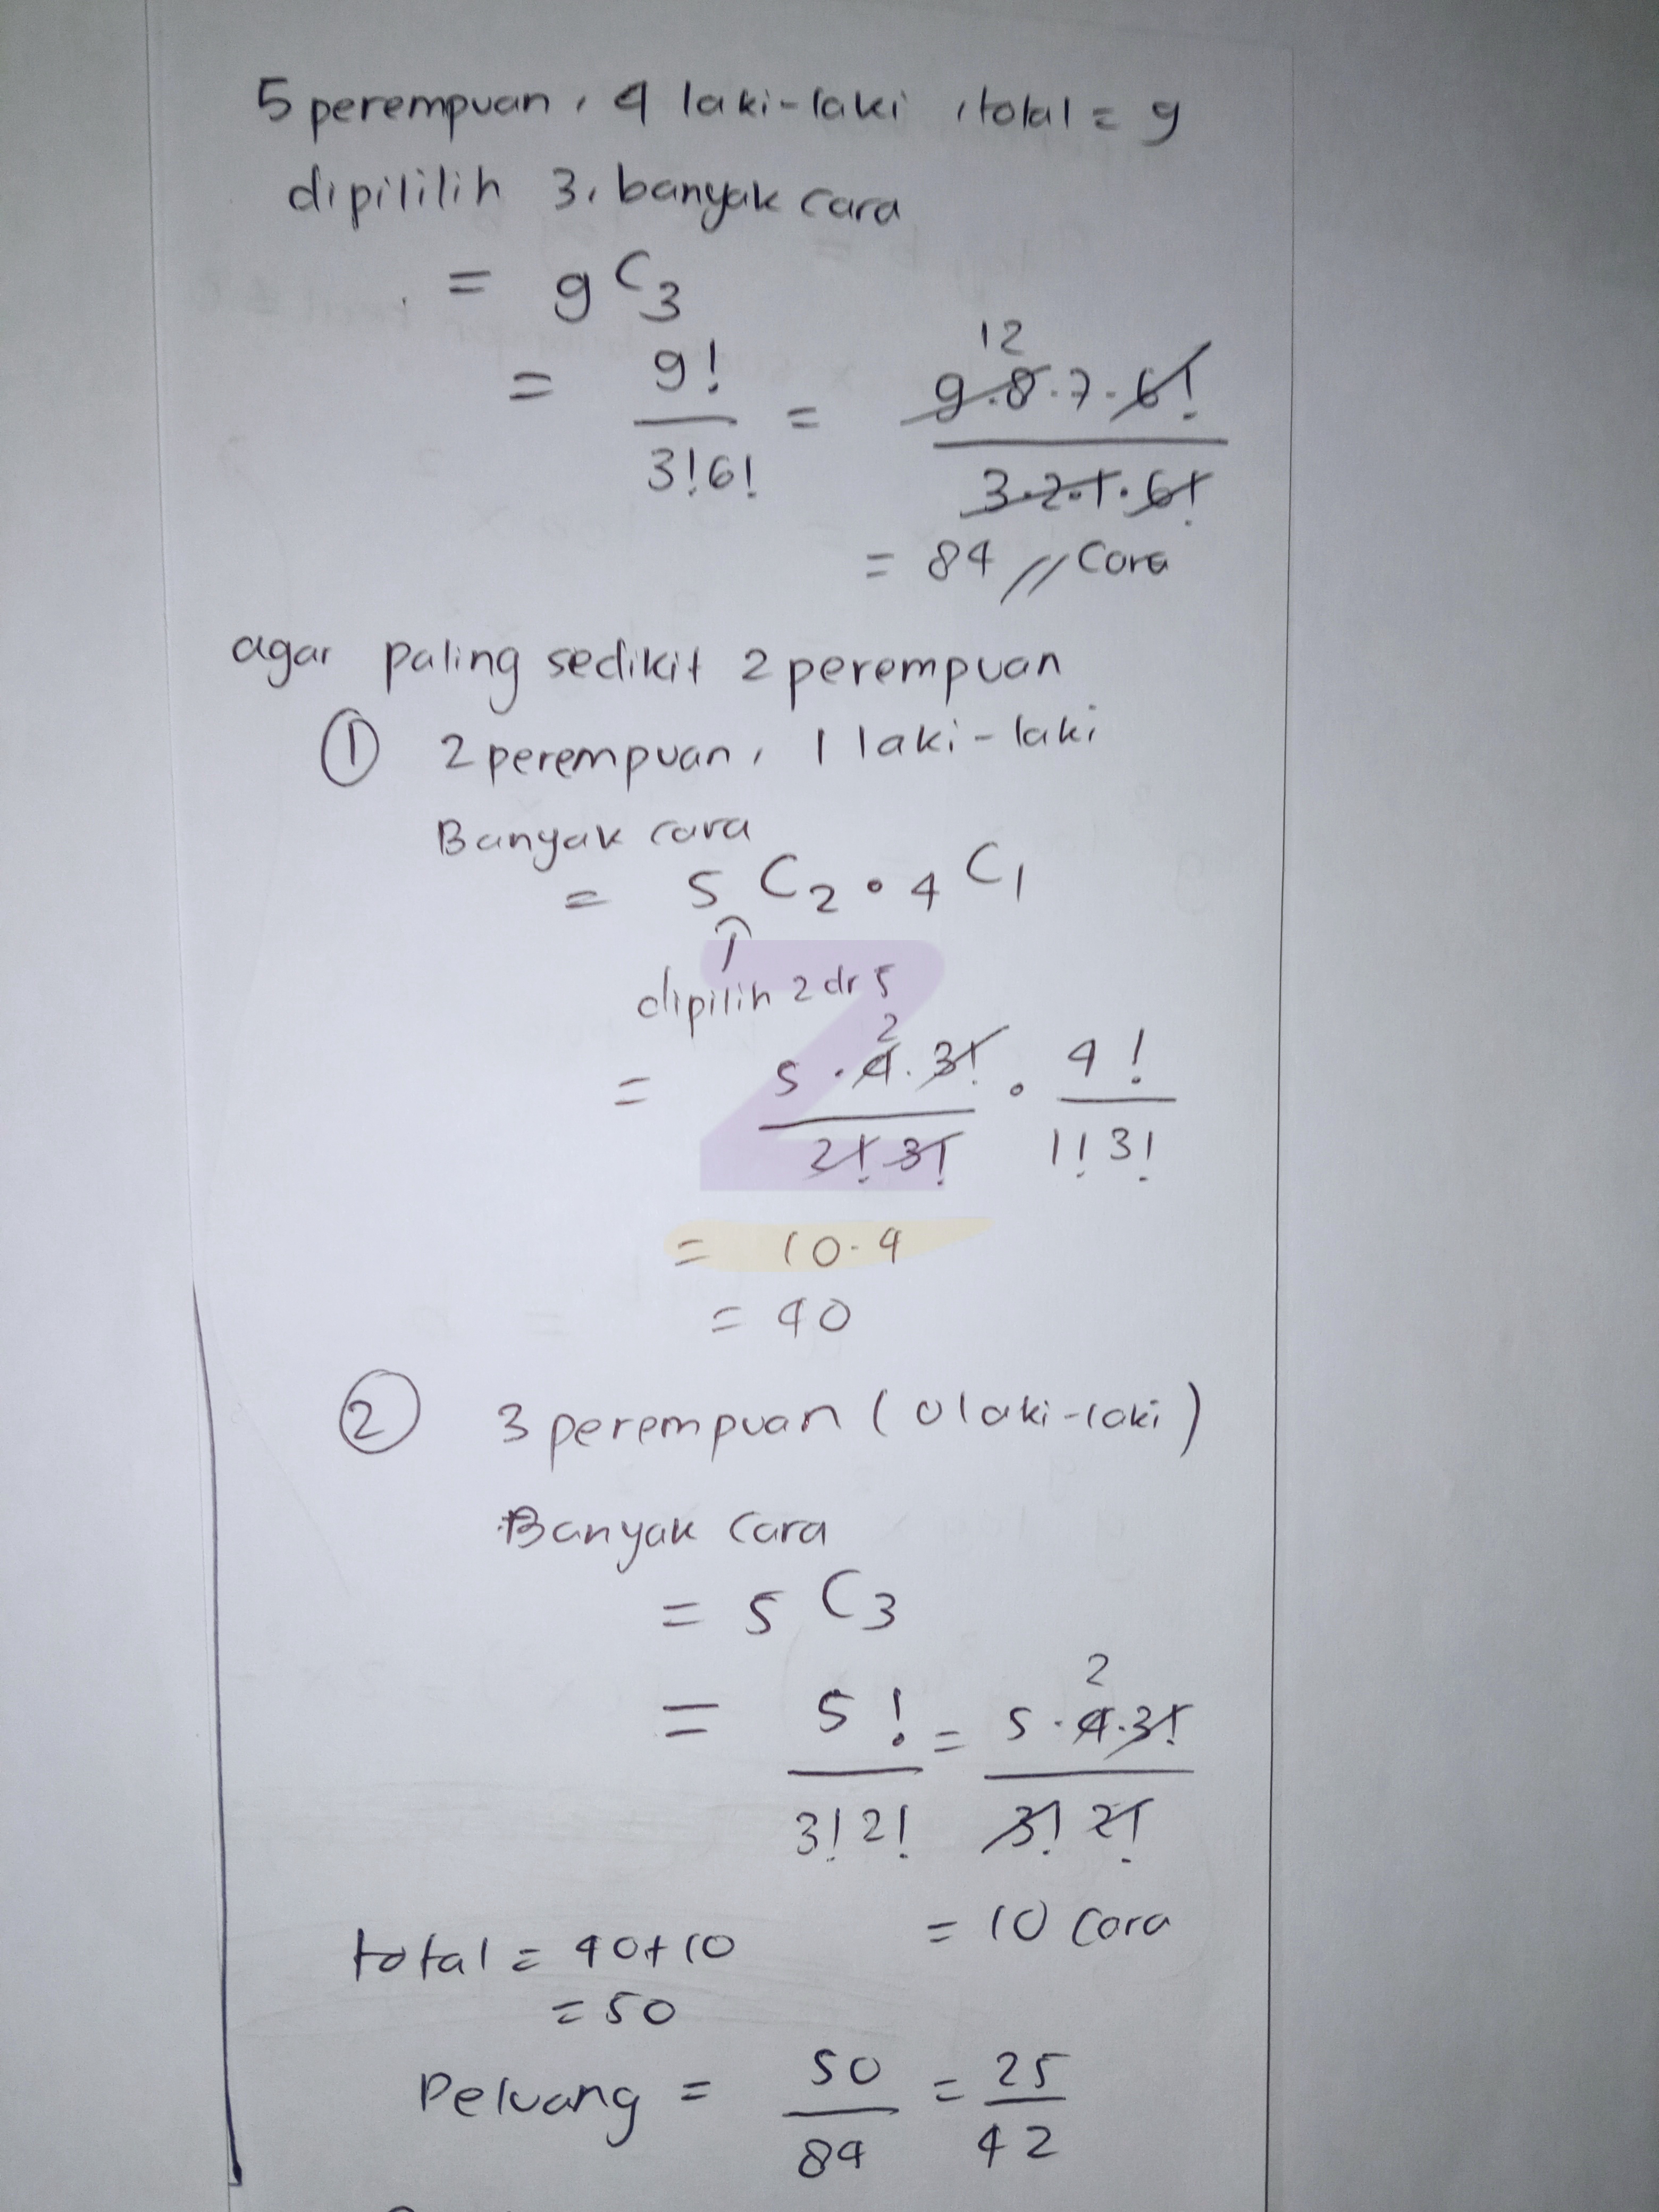 5 perempuan, 4 laki-laki, total = 9
dipililih 3, banyak cara
= 9 C 3
= 9! / 3!6! = 12 9.8.7.6! / 3.2.1.6!
= 84 // Cara
agar paling sedikit 2 perempuan
① 2 perempuan, 1 laki-laki
Banyak cara
= 5 C2 • 4 C1
↑
dipilih 2 dr 5
= 5 . 4 2 . 3! / 2! 3! . 4! / 1! 3!
= 10.4
= 40
② 3 perempuan (0 laki-laki)
Banyak Cara
= 5 C3
= 5! / 3!2! = 5 . 4 2 . 3! / 3! 2!
= 10 Cara
total = 40+10
= 50
Peluang = 50 / 84 = 25 / 42